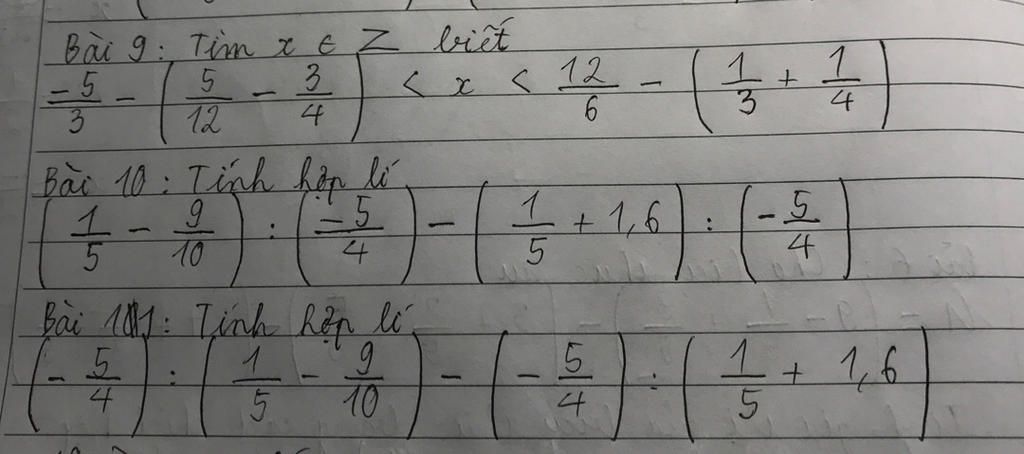 Bài 9: Tìm x ∈ Z biết
-5/3 - (5/12 - 3/4) < x < 12/6 - (1/3 + 1/4)
Bài 10: Tính hợp lí
(1/5 - 9/10) : (-5/4) - (1/5 + 1,6) : (-5/4)
Bài 11: Tính hợp lí
(-5/4) : (1/5 - 9/10) - (-5/4) : (1/5 + 1,6)